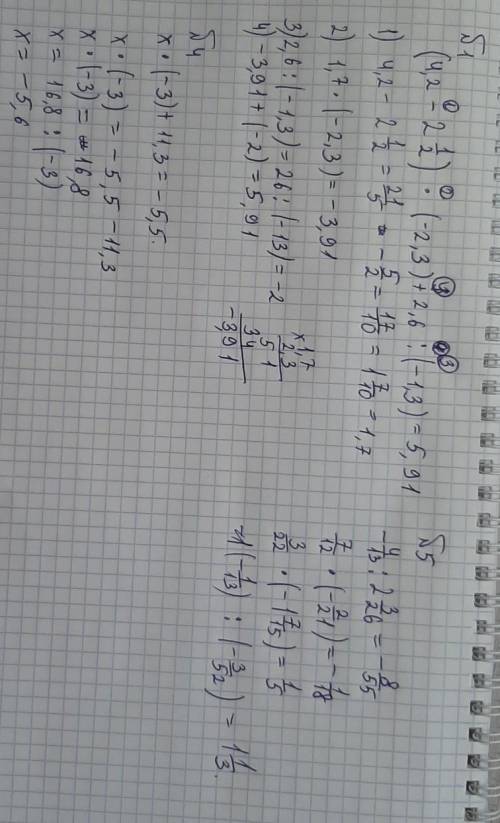 №1
(4,2 - 2 1/2) · (-2,3) + 2,6 : (-1,3) = 5,91
1) 4,2 - 2 1/2 = 21/5 - 5/2 = 17/10 = 1 7/10 = 1,7
2) 1,7 · (-2,3) = -3,91
3) 2,6 : (-1,3) = 26 : (-13) = -2
4) -3,91 + (-2) = 5,91
× 1,7
2,3
5 1
3 4
-3,9 1
№4
x · (-3) + 11,3 = -5,5.
x · (-3) = -5,5 - 11,3
x · (-3) = -16,8
x = 16,8 : (-3)
x = -5,6
№5
-4/13 : 2 2/26 = -8/55
7/12 · (-2/21) = -1/18
3/22 · (-1 7/15) = 1/5
-1 (-1/13) : (-3/52) = 1 1/3.